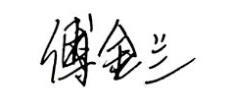 傅金兰